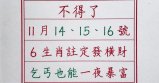 不得了
11月14、15、16號
6生肖註定發橫財
乞丐也能一夜暴富